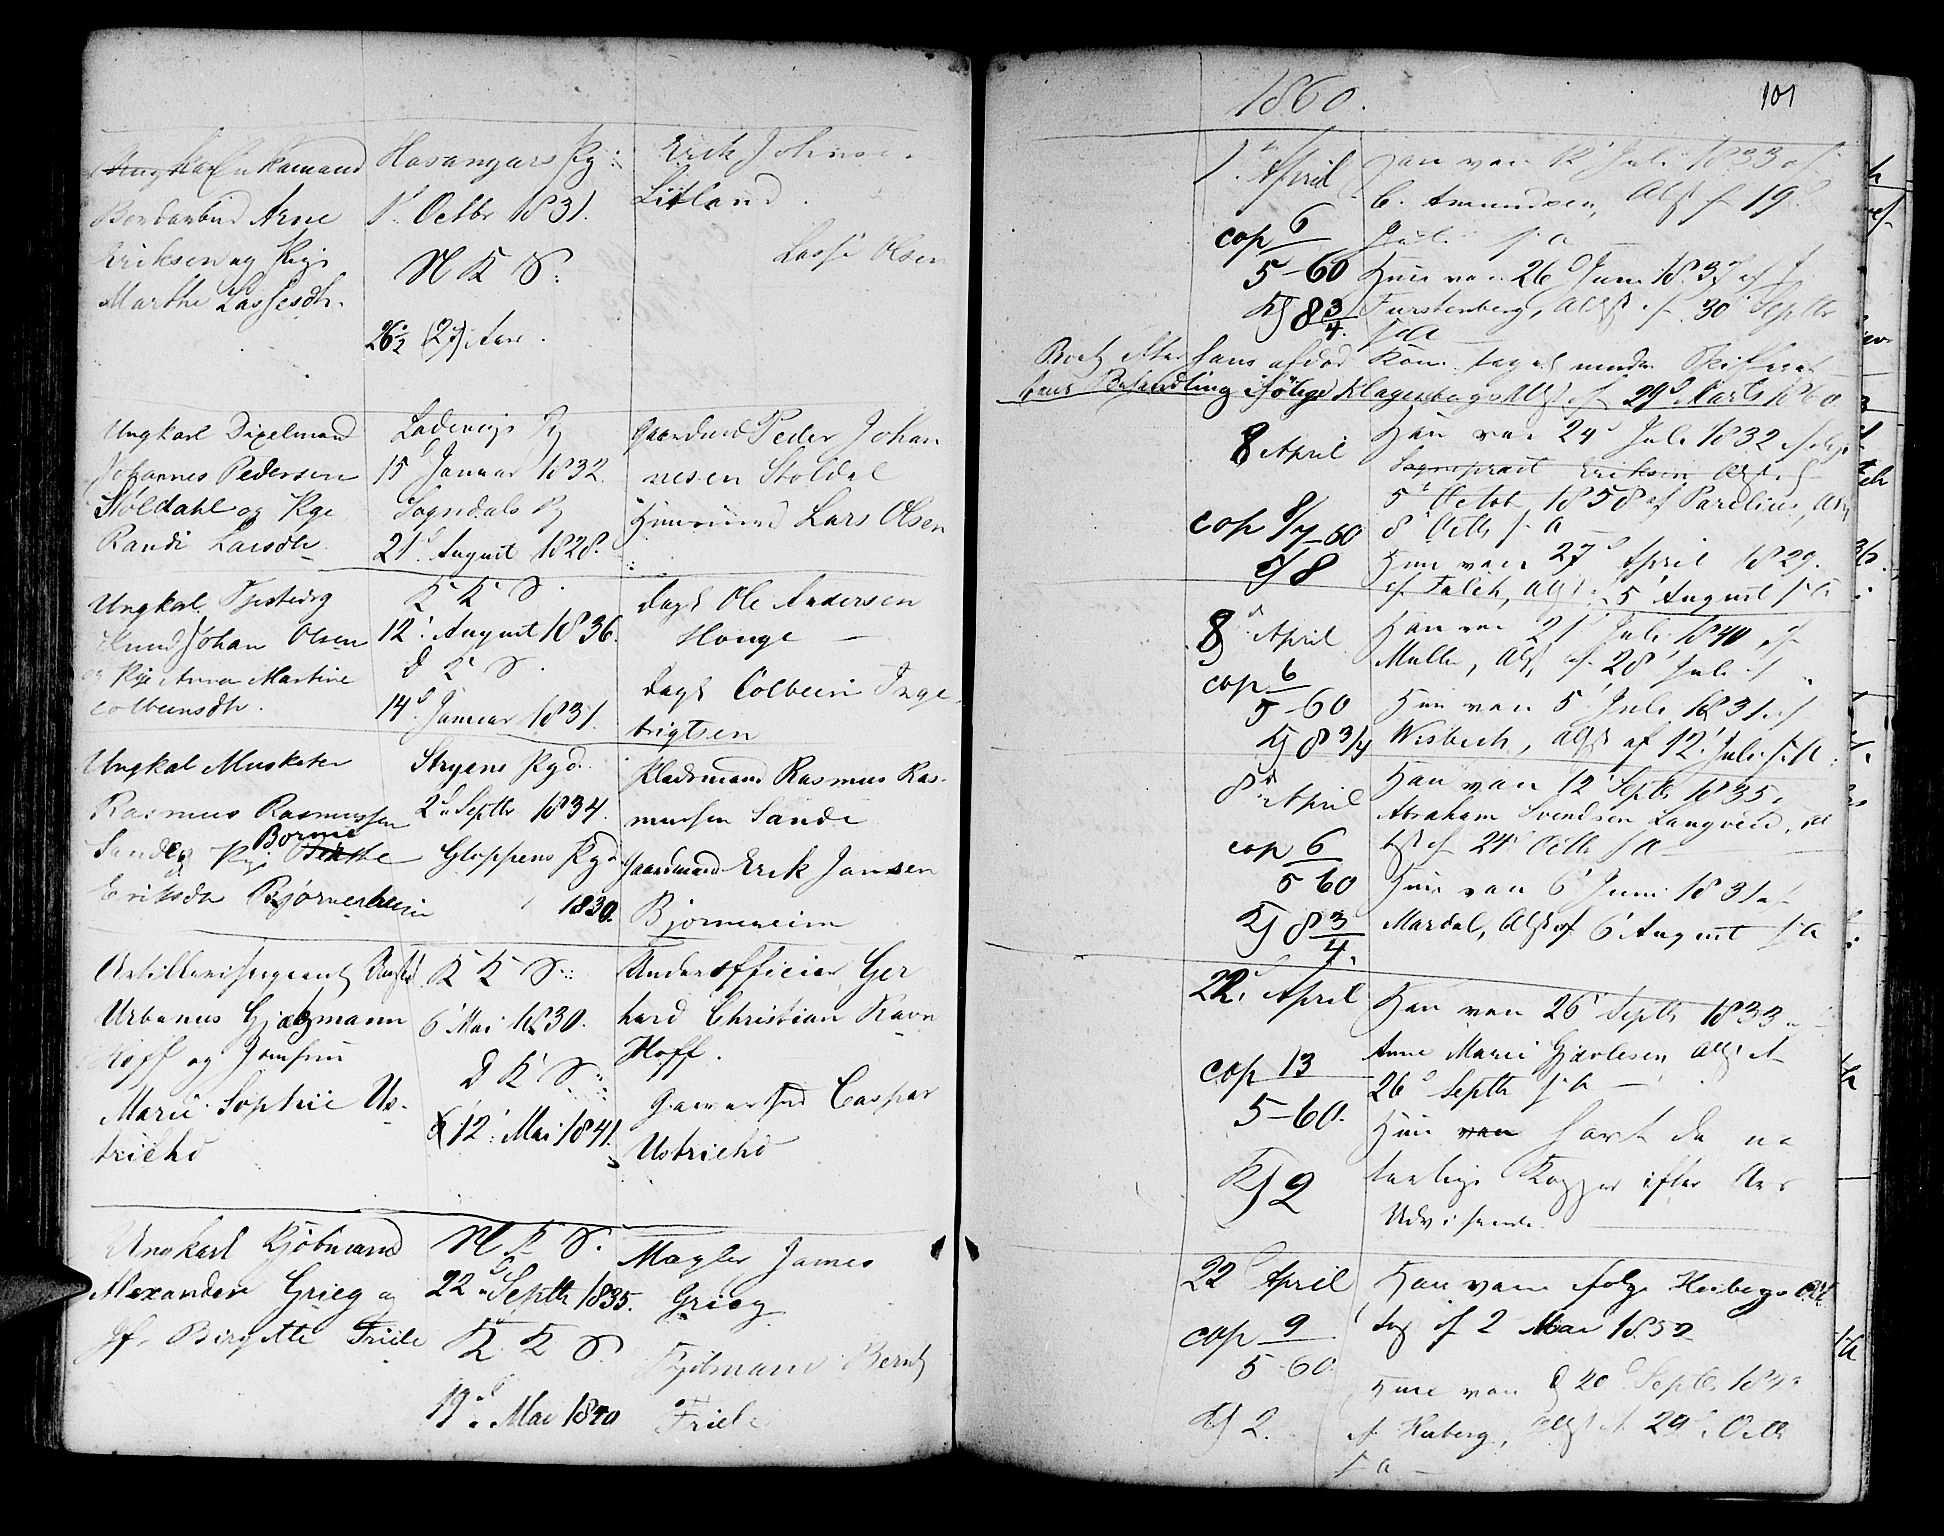 Enkemand
Bondarbud Arne
Eriksen og Pige
Marthe Lassesdtr.
Hosangers Pg:
1ste Octbr 1831.
N K S:
26½ (27) Aar.
Erik Johnsen
Litland.
Lasse Olsen
Ungkarl
Johannes Pedersen
Støldahl og Pge
Randi Larsdtr
Ladevigs Pg
15d Januar 1832.
Sogndals Pg
21d August 1828.
Gaardmd Peder Johan
nesen Støldal
Huusmand Lars Olsen
Ungkarl
Knud Johan Olsen
og Pige Anna Martine
Colbeinsdtr.
K K S.
12' August 1836.
D K S.
14d Januar 1831.
Dagk Ole Andersen
Hauge —
Dagk Colbein Inge
brigtsen
Ungkal Musketer
Rasmus Rasmussen
Sande og Pige Borni
Eriksdr Bjørnereim
Stryens Pgd.
2d Septbr 1834.
Gloppens Pgd
1830.
Pladsmand Rasmus Ras-
mussen Sande
Gaardmand Erik Jansen
Bjørnereim
Artillerisergeant
Urbanus Hjelgmann
Hoff og Jomfru
Marie Sophie Us-
trichd
K K S.
6' Mai 1830.
D K S.
12' Mai 1841.
Underofficier Ger
hard Christian Ravn
Hoff.
Caspar
Ustrichd
Ungkarl Kjøbmand
Alexander Grieg og
Jf. Birgitte Friele
N K S.
22d Septbr 1835.
K K S.
19d Mai 1840
Mægler James
Grieg
Kjøbmand Berndt
Friele
1860.
101
1. April
cop 6
5-60
Kj 8 3/4
Han vac 12' Juli 1833 af
C. Amundsen, Attst af 19d
Juli s. a
Hun vac 26d Juni 1837 af
Furstenberg, Attst af 30' Septbr
s a
Boet efter hans afdød Kone taget under Skifteret
tens Behandling ifølge Klagenbergs Attst af 29d Marts 1860
8 April
cop 8/7-60
Kj 8
Han vac 24d Juli 1832 ifølge
Sogneprest Eriksen Attst af
5' Octob 1858 af Parelius, Attst
8' Octb s. a
Hun vac 27d April 1829.
af Falch, Attst 5' August s a
8d April
cop 6
5-60
Kj 8 3/4
Han vac 21' Juli 1840 af
Muller, Attst af 28' Juli s a
Hun vac 5' Juli 1831 af
Wisbech, Attst af 12' Juli s. A.
8d April
cop 6
5 60
Kj 8 3/4.
Han vac 12' Septb 1835 a
Abraham Svendsen Langvein, At
tst af 24' Octb s a
Hun vac 6' Juni 1831 af
Mardal, Attst af 6' August s a
22' April
cop 13
5-60.
Kj 2
Han vac 26' Septb 1833 a
Anne Marie Gjerlesen, Attst af
26d Septb s. a —
Hun vac havt de na
turlige Kopper efter
Udvisende.
22' April
cop 9
5-60
Kj 2.
Han vac ifølge Heibergs Att
est af 2 Mai 1857
Hun vac d 20d Septbr 184
af Heiberg, Attst af 29d Octb
s a —